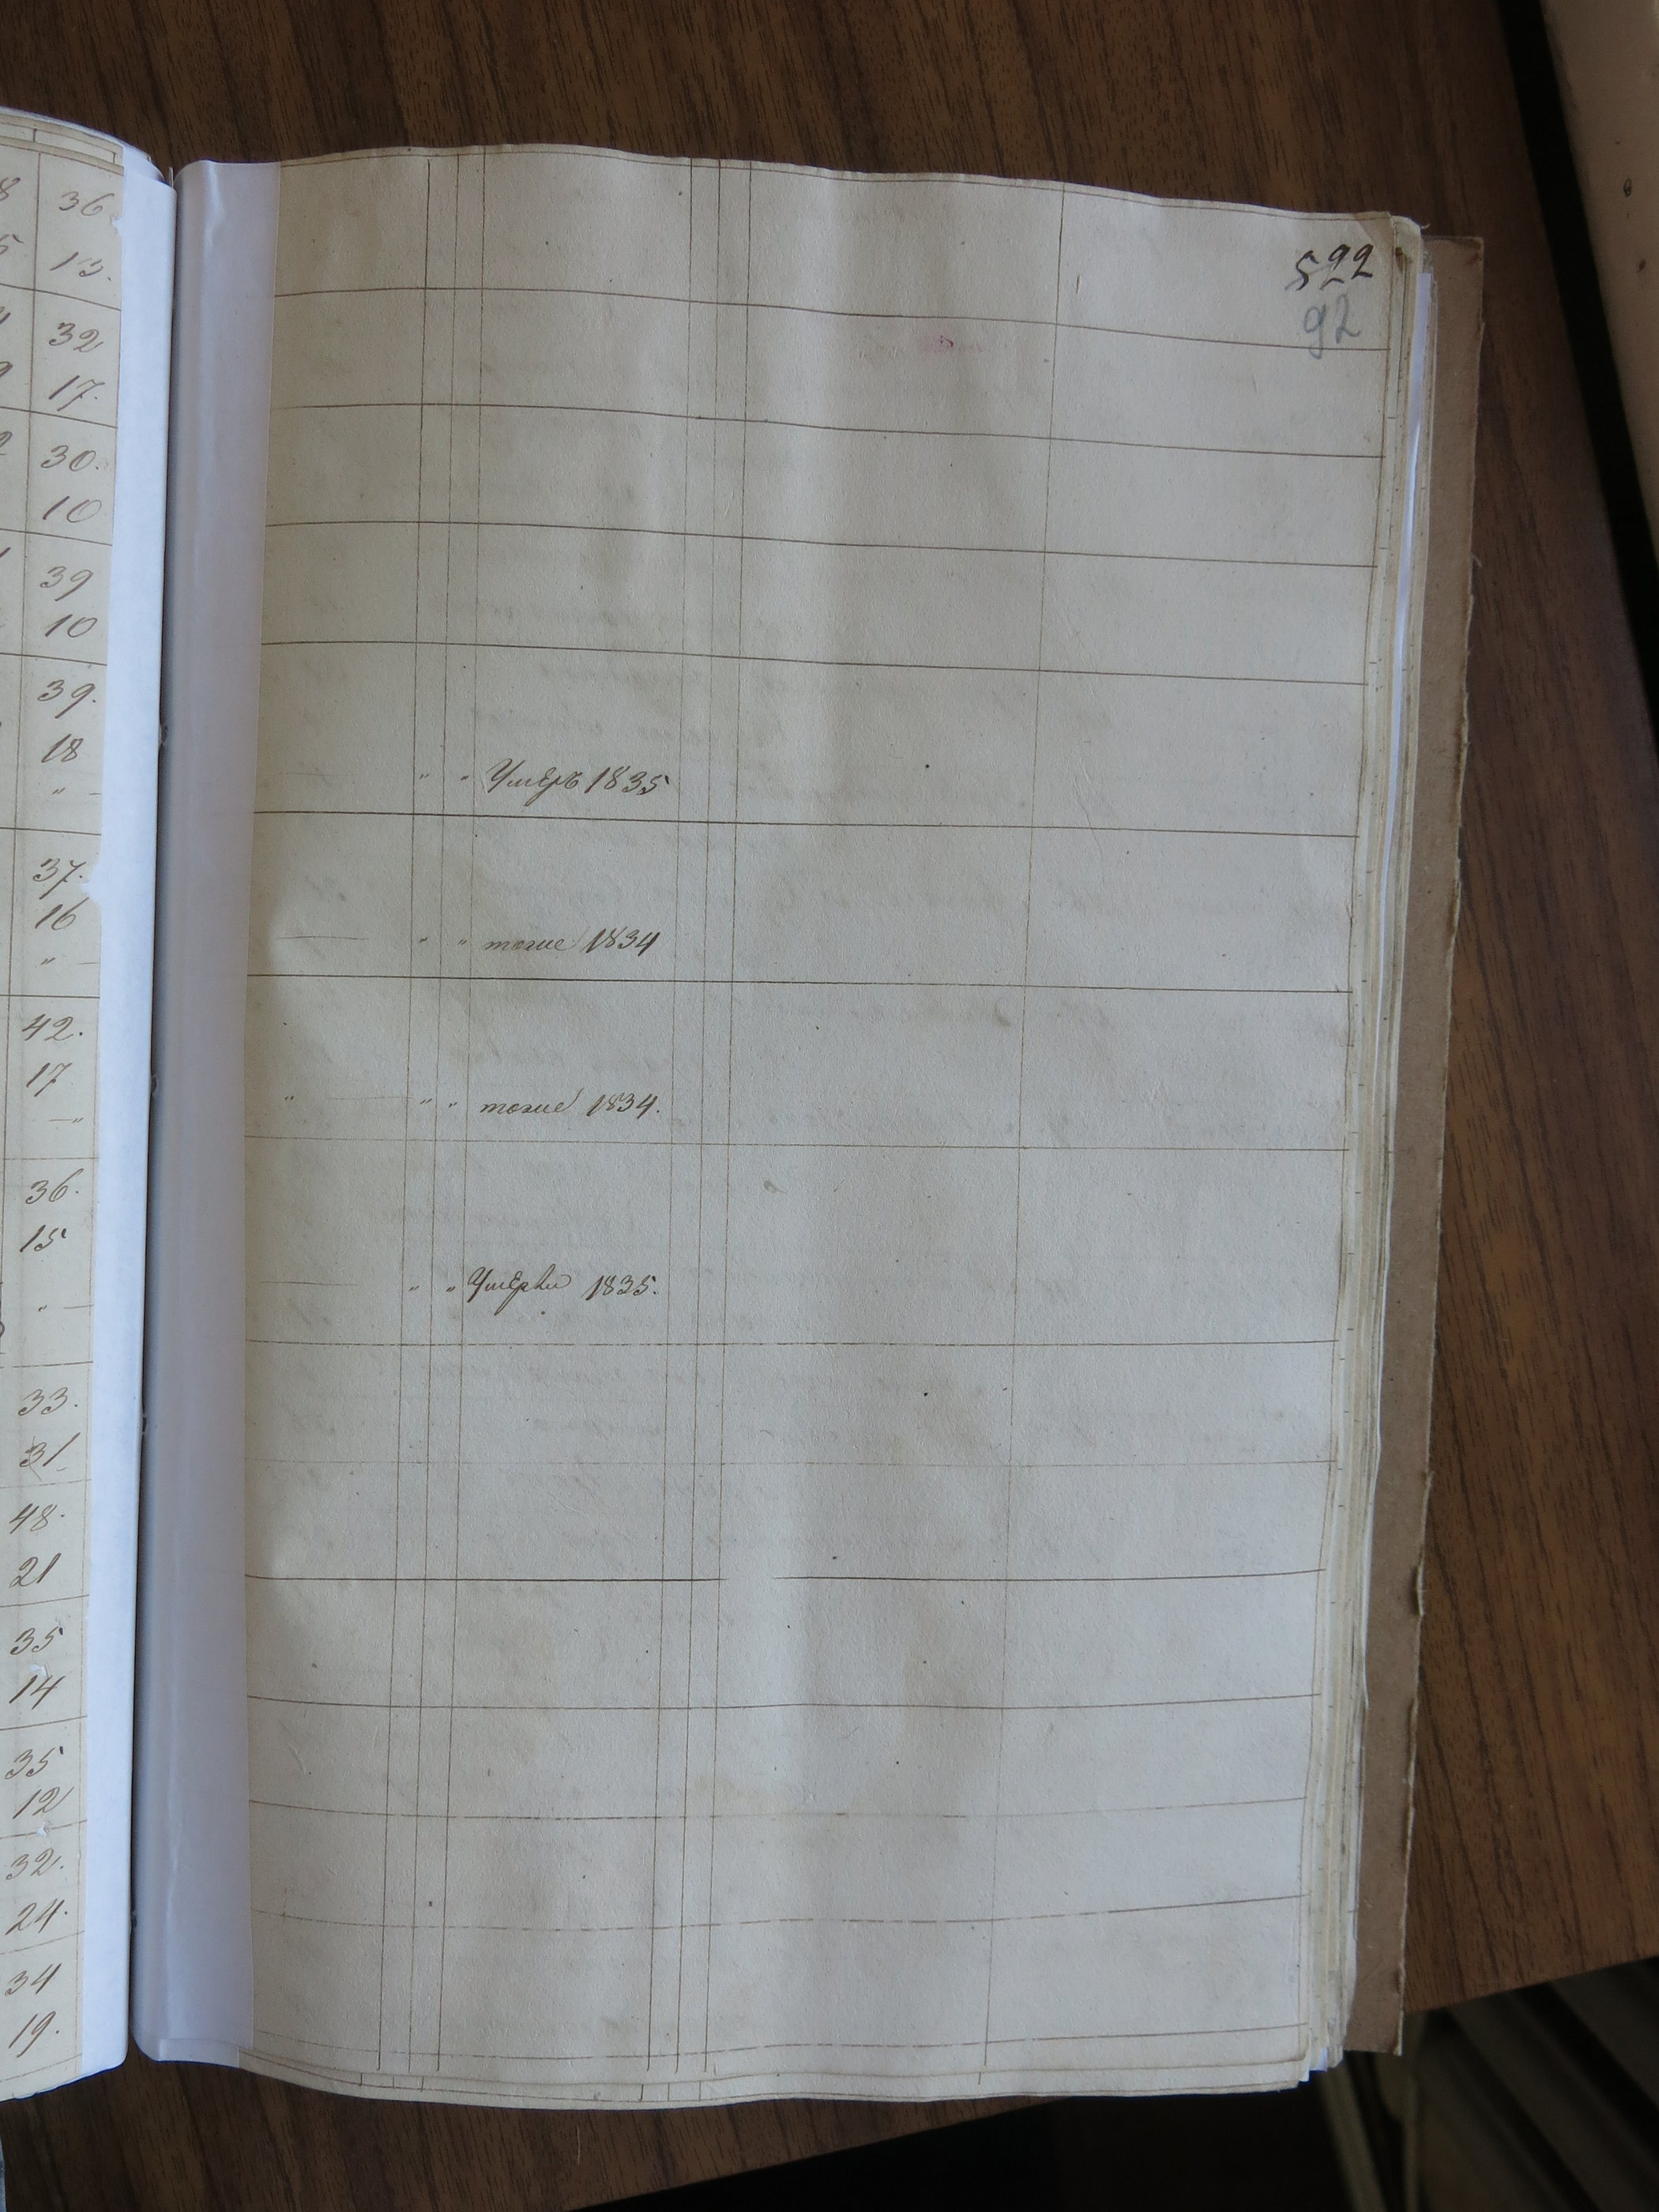 36
13.
32
17.
30.
10
39
10
39.
18
" —
37.
16
" —
42.
17
— "
36.
15
" —
33.
31
48.
21
35
14
35
12
32.
24.
34
19.
522
92
" " Умеръ 1835
— " " тоже 1834
" — " " тоже 1834.
— " " Умерли 1835.